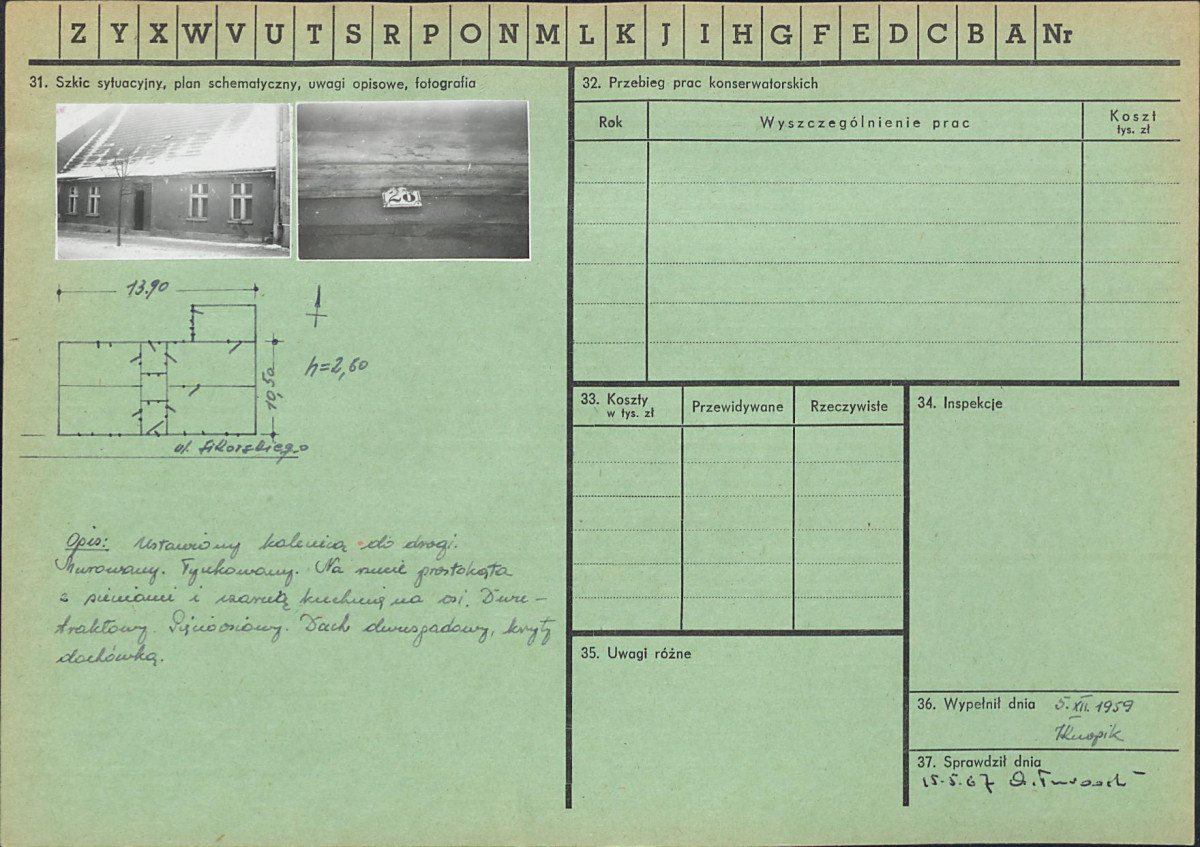 Z Y X W V U T S R P O N M L K J I H G F E D C B A Nr
31. Szkic sytuacyjny, plan schematyczny, uwagi opisowe, fotografia
25
13.90
h=2,60
10,50
ul. Sikorskiego
Opis: Ustawiony kalenicą do drogi.
Murowany. Tynkowany. Na rzucie prostokąta
z sieniami i czarną kuchnią na osi. Dwu-
traktowy. Pięcioosiowy. Dach dwuspadowy, kryty
dachówką.
32. Przebieg prac konserwatorskich
Rok
Wyszczególnienie prac
Koszt
tys. zł
33. Koszty
w tys. zł
Przewidywane
Rzeczywiste
34. Inspekcje
35. Uwagi różne
36. Wypełnił dnia 5.XII.1959
37. Sprawdził dnia
15.5.67